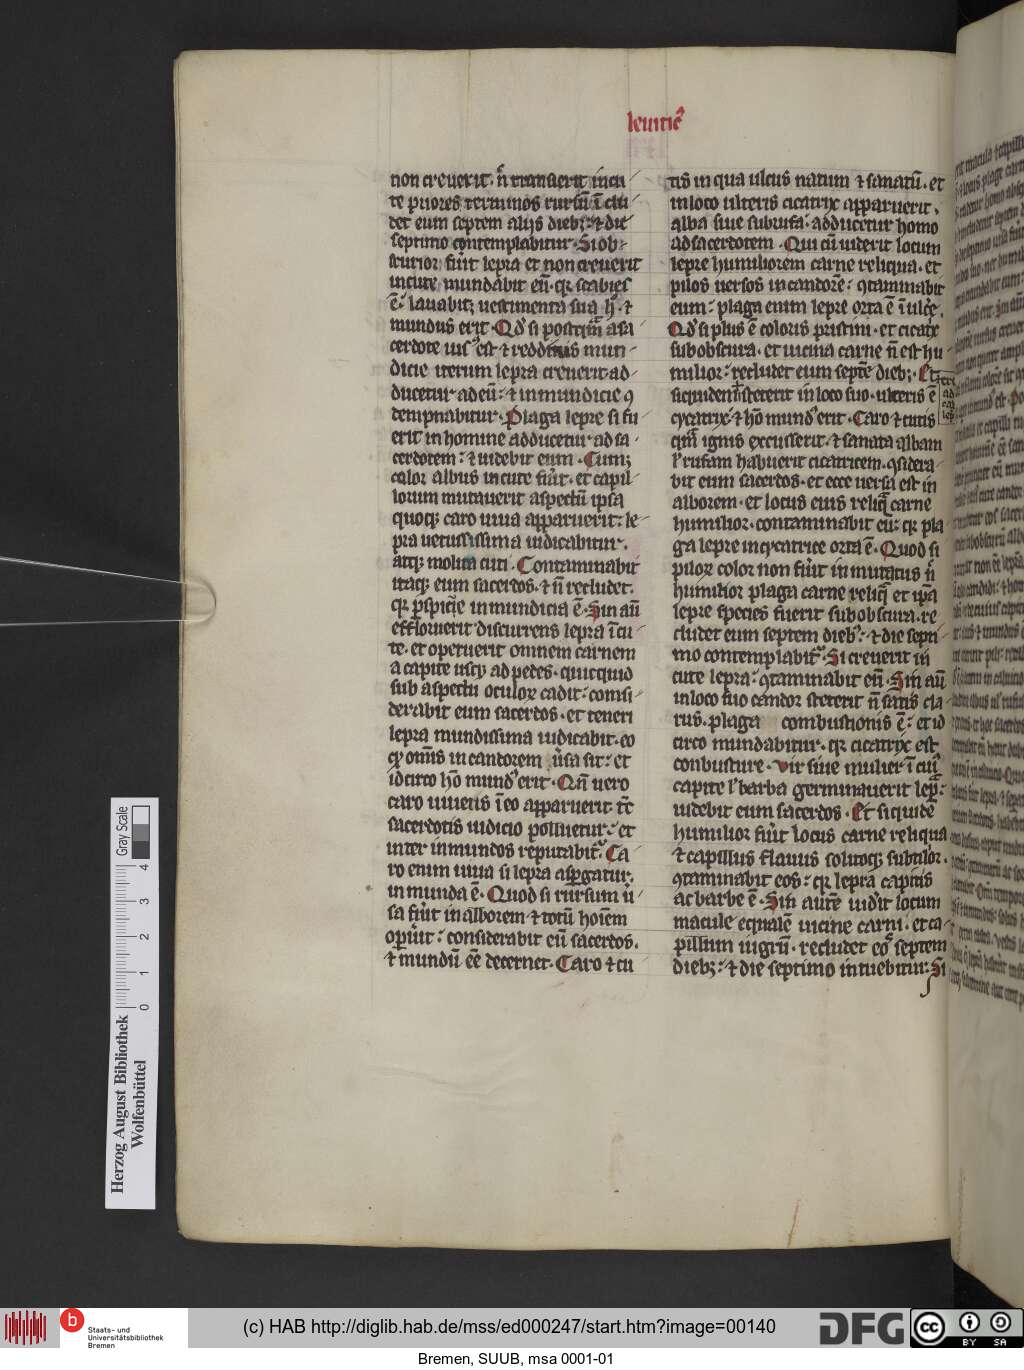 leuitic᷒
non creuerit · n̄ transierit incu
te priores terminos rursū ī clu
det eum septem alijs dieb; · ⁊ die
septimo contemplabitur · Si ob
scurior fuīt lepra et non creuerit
in cute mundabit eū · qꝛ scabies
ē · lauabitqꝫ uestimenta sua hō · ⁊
mundus erit · Qd̓ si postqm̄ a sa
cerdote uisꝰ est ⁊ redditus mun
dicie iterum lepra creuerit · ad
ducetur ad eū · ⁊ in mundicie ꝯ
dempnabitur · Plaga lepre si fu
erit in homine adducetur ad sa
cerdotem · ⁊ uidebit eum · Cumqꝫ
color albus in cute fuīt · et capil
lorum mutauerit aspectū ipsa
quoqꝫ caro uiua apparuerit · le
pra uetustissima iudicabitur ·
atqꝫ molita cuti · Contaminabit
itaqꝫ eum sacerdos · ⁊ ñ recludet ·
qꝛ ꝑspicue in mundicia ē · Sin aū
effloruerit discurrens lepra ī cu
te · et operuerit omnem carnem
a capite uscꝫ ad pedes · quicquid
sub aspectu oculoꝝ cadit · consi
derabit eum sacerdos · et teneri
lepra mundissima iudicabit · eo
qꝫ om̄is in candorem ūsa sit · et
idcirco hō mundꝰ erit · Qn̄ uero
caro uiuens ī eo apparuerit · tc̄
sacerdotis iudicio polluetur · et
inter inmundos reputabit᷑ · Ca
ro enim uiua si lepra aspgatur ·
in munda ē · Quod si rursum ū
sa fuīt in alborem · ⁊ totū hoīem
opīut · considerabit eū sacerdos ·
⁊ mundū eē decernet · Caro ⁊ cu
tis in qua ulcus natum ⁊ sanatū · et
in loco ulceris cicatrix apparuerit ·
alba siue subrufa · adducetur homo
ad sacerdotem · Qui cū uiderit locum
lepre humiliorem carne reliqua · et
pilos uersos in candorē · ꝯtaminabit
eum · plaga enim lepre orta ē ī ulcē ·
Qd̓ si plus ē coloris pristini · et cicatx̄
subobscura · et uicina carne n̄ est hu
milior · recludet eum septē dieb; · Et
siquidem steterit in loco suo · ulceris ē
cycatrix · ⁊ hō mundꝰ erit · Caro ⁊ cutis
qm̄ ignis excusserit · ⁊ sanata albam
ł rufam habuerit cicatricem · ꝯsidera
bit eum sacerdos · et ecce uersa est in
alborem · et locus eius reliq̄ carne
humilior · contaminabit eū · qꝛ pla
ga lepre in cycatrice orta ē · Quod si
piloꝝ color non fuīt in mutatus n̄
humilior plaga carne reliq̄ et ip̄a
lepre species fuerit subobscura · re
cludet eum septem dieb; · ⁊ die septi
mo contemplabit᷑ · Si creuerit in
cute lepra · ꝯtaminabit eū · Sin aū
in loco suo candor steterit n̄ satis cla
rus · plaga combustionis ē · et id
circo mundabitur · qꝛ cicatrix est
conbusture · Vir siue mulier ī cuiꝰ
capite ł barba germinauerit lep̄ ·
uidebit eum sacerdos · Et siquidē
humilior fuīt locus carne reliqua
⁊ capillus flauus solitoqꝫ subtilor ·
ꝯtaminabit eos · qꝛ lepra capitis
ac barbe ē · Sin autē uidīt locum
macule equalē uicine carni · et ca
pillum nigrū · recludet eoꝰ septem
dieb; · ⁊ die septimo intuebitur · Si
Herzog August Bibliothek
Wolfenbüttel
0 1 2 3 4
Gray Scale
b
Staats- und
Universitätsbibliothek
Bremen
(c) HAB http://diglib.hab.de/mss/ed000247/start.htm?image=00140
DFG
cc
BY SA
Bremen, SUUB, msa 0001-01